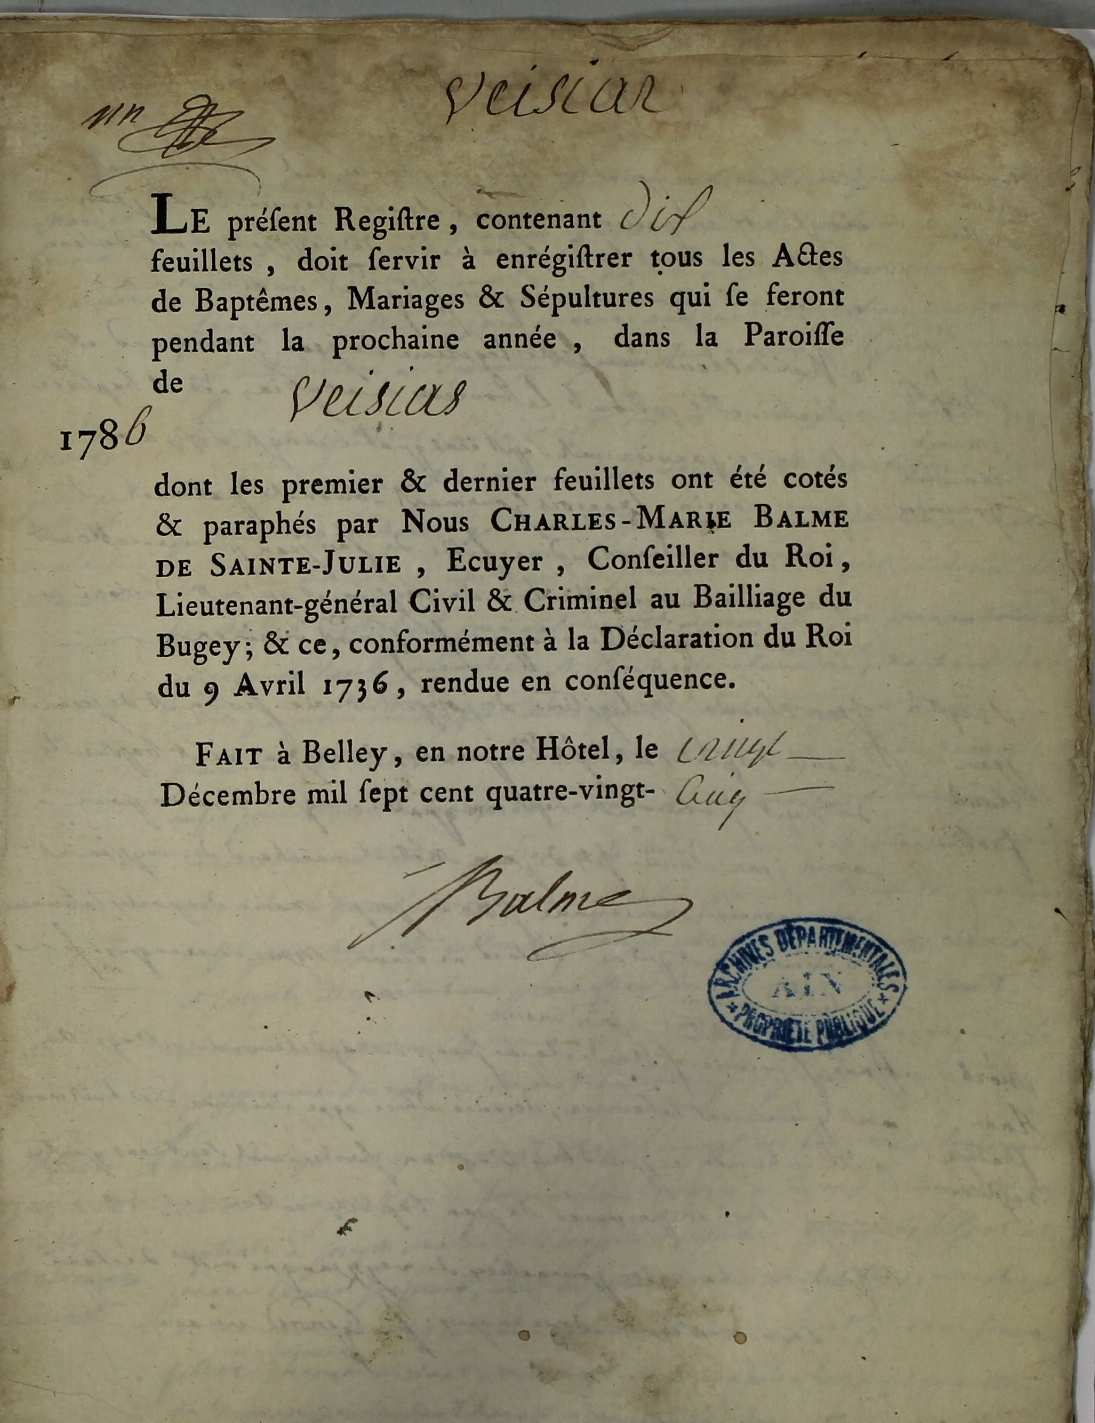 veisiar
un
LE préſent Regiſtre, contenant dix
feuillets, doit ſervir à enrégiſtrer tous les Actes
de Baptêmes, Mariages & Sépultures qui ſe feront
pendant la prochaine année, dans la Paroiſſe
de veisias
1786
dont les premier & dernier feuillets ont été cotés
& paraphés par Nous CHARLES-MARIE BALME
DE SAINTE-JULIE, Ecuyer, Conſeiller du Roi,
Lieutenant-général Civil & Criminel au Bailliage du
Bugey; & ce, conformément à la Déclaration du Roi
du 9 Avril 1736, rendue en conſéquence.
FAIT à Belley, en notre Hôtel, le vingt
Décembre mil ſept cent quatre-vingt- cinq
Balme
ARCHIVES DÉPARTEMENTALES
AIN
* PROPRIÉTÉ PUBLIQUE *